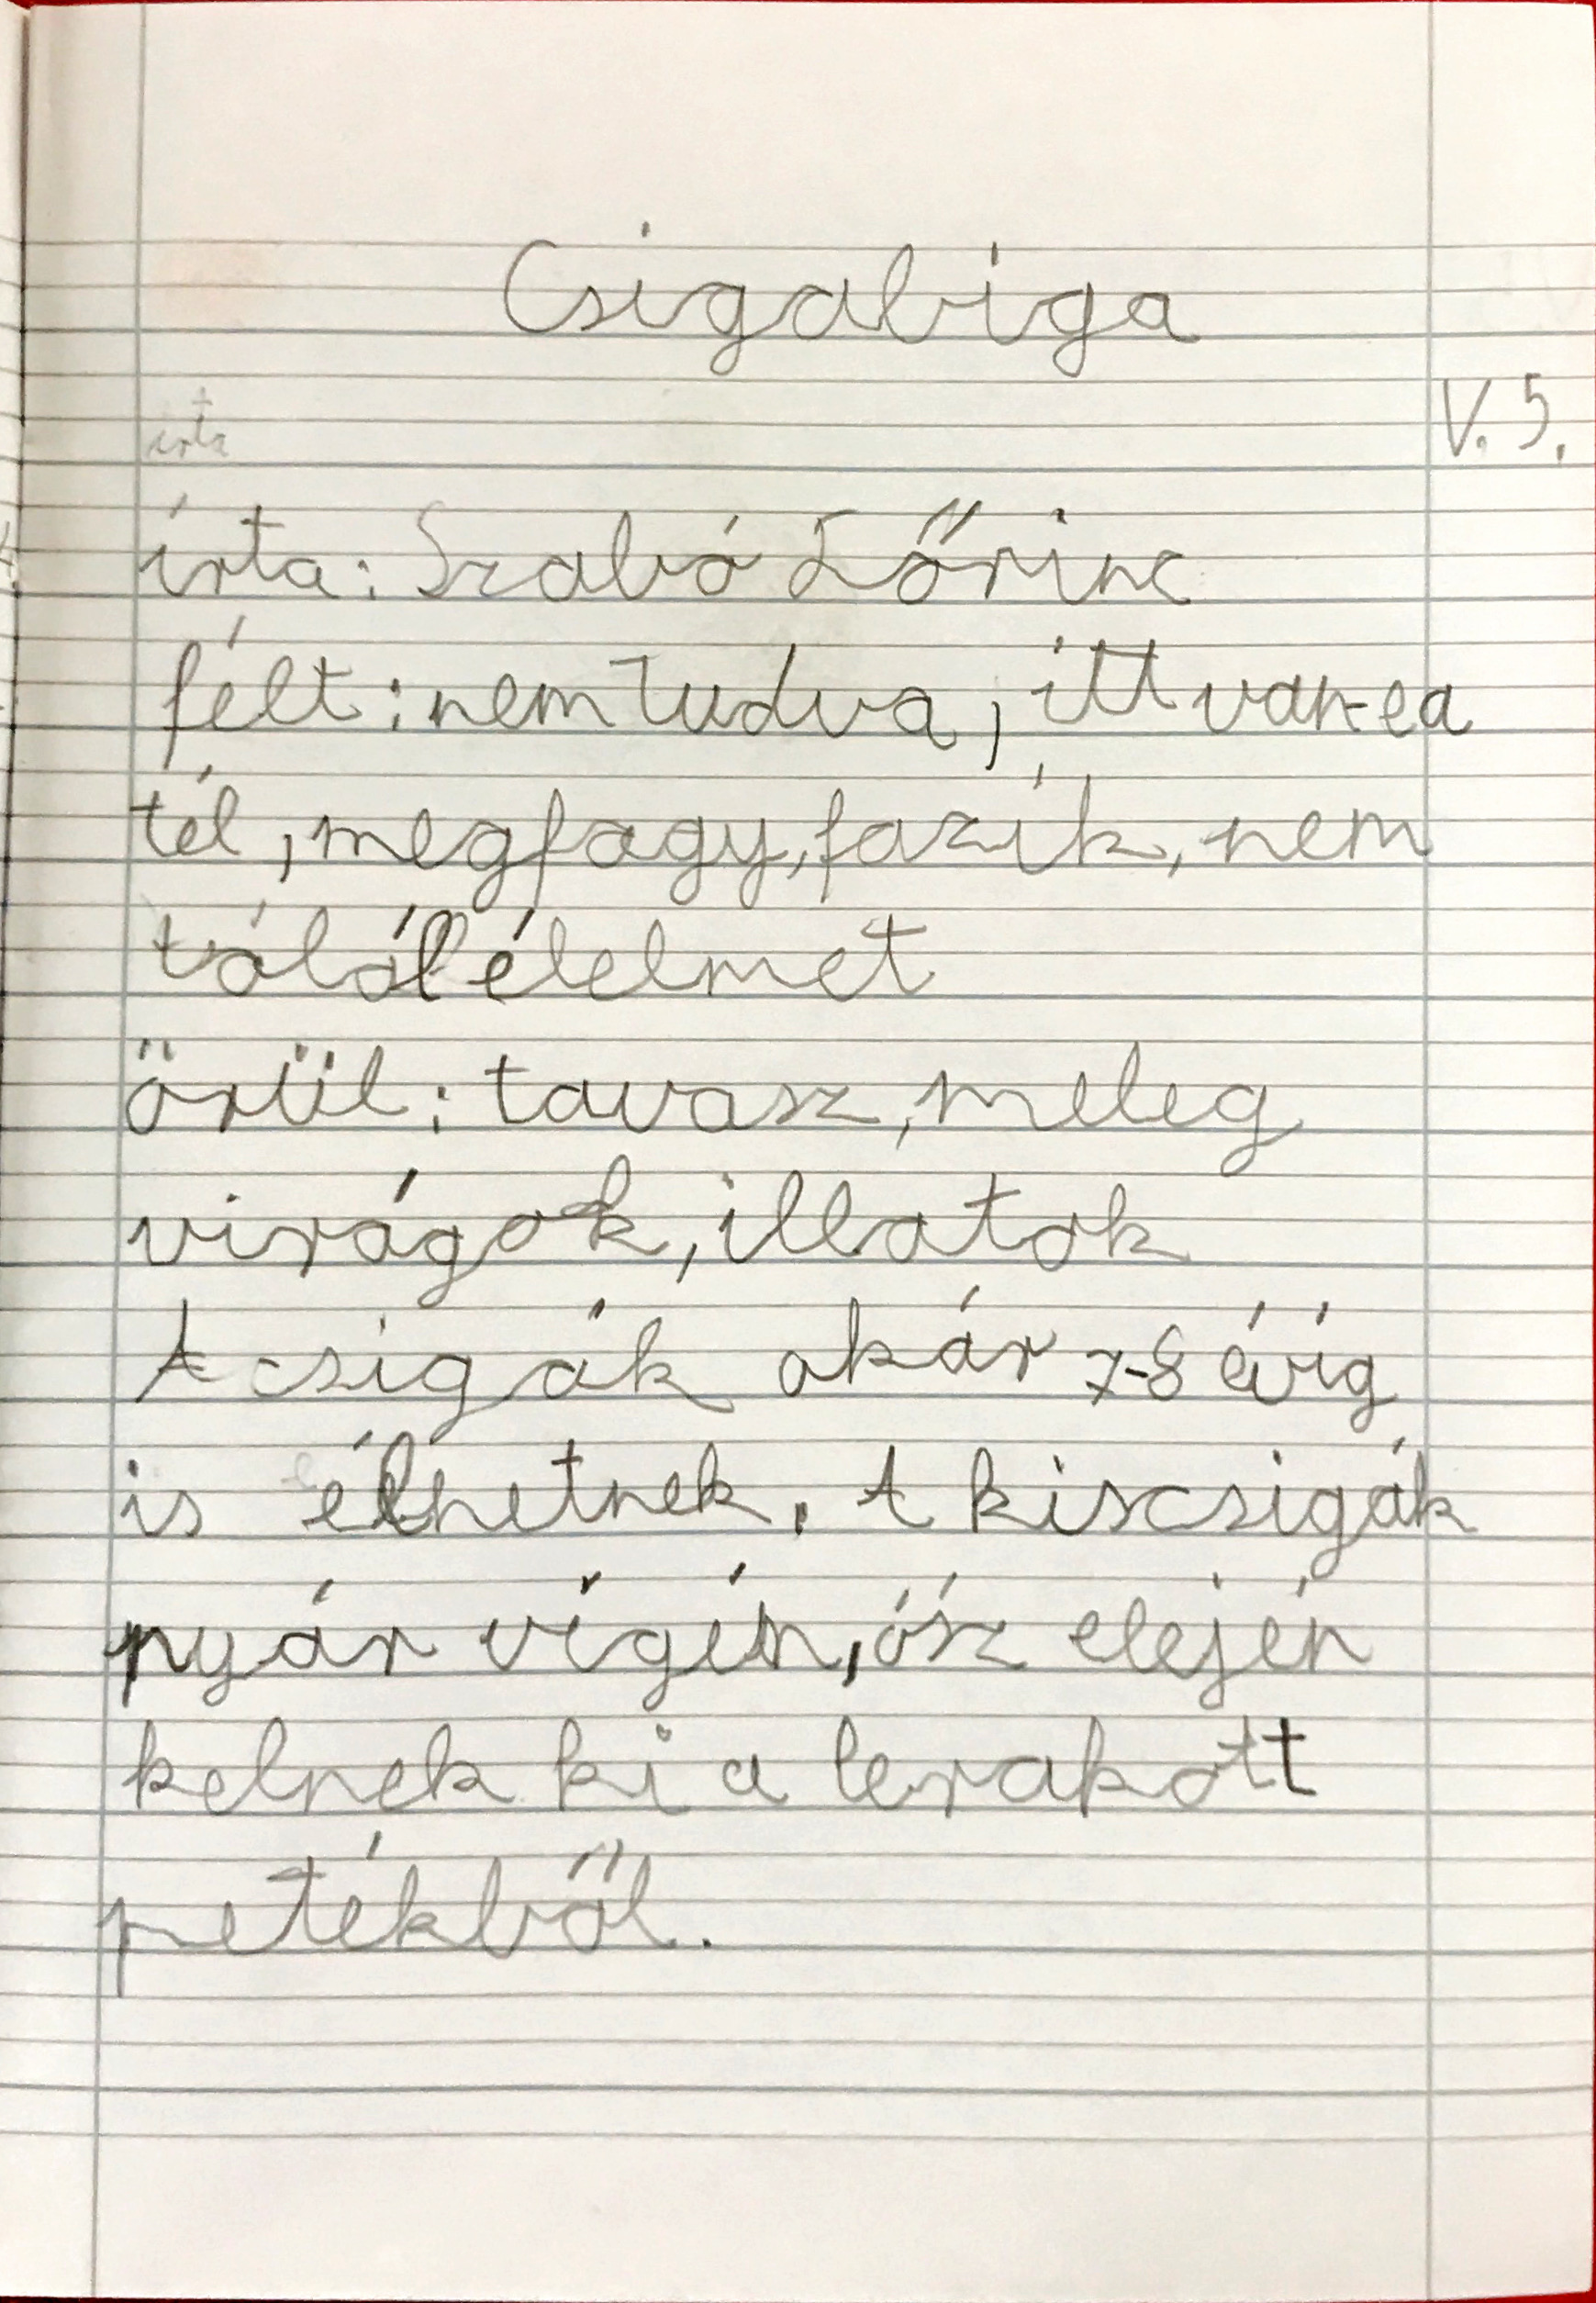 Csigabiga
V. 5.
írta
írta: Szabó Lőrinc
félt: nem tudva, itt van-e a
tél, megfagy, fazik, nem
tólál élelmet
örül: tavasz, meleg
virágok, illatok
A csigák akár 7-8 évig
is élhetnek. A kiscsigák
nyár végén, ősz elején
kelnek ki a lerakott
petékből.